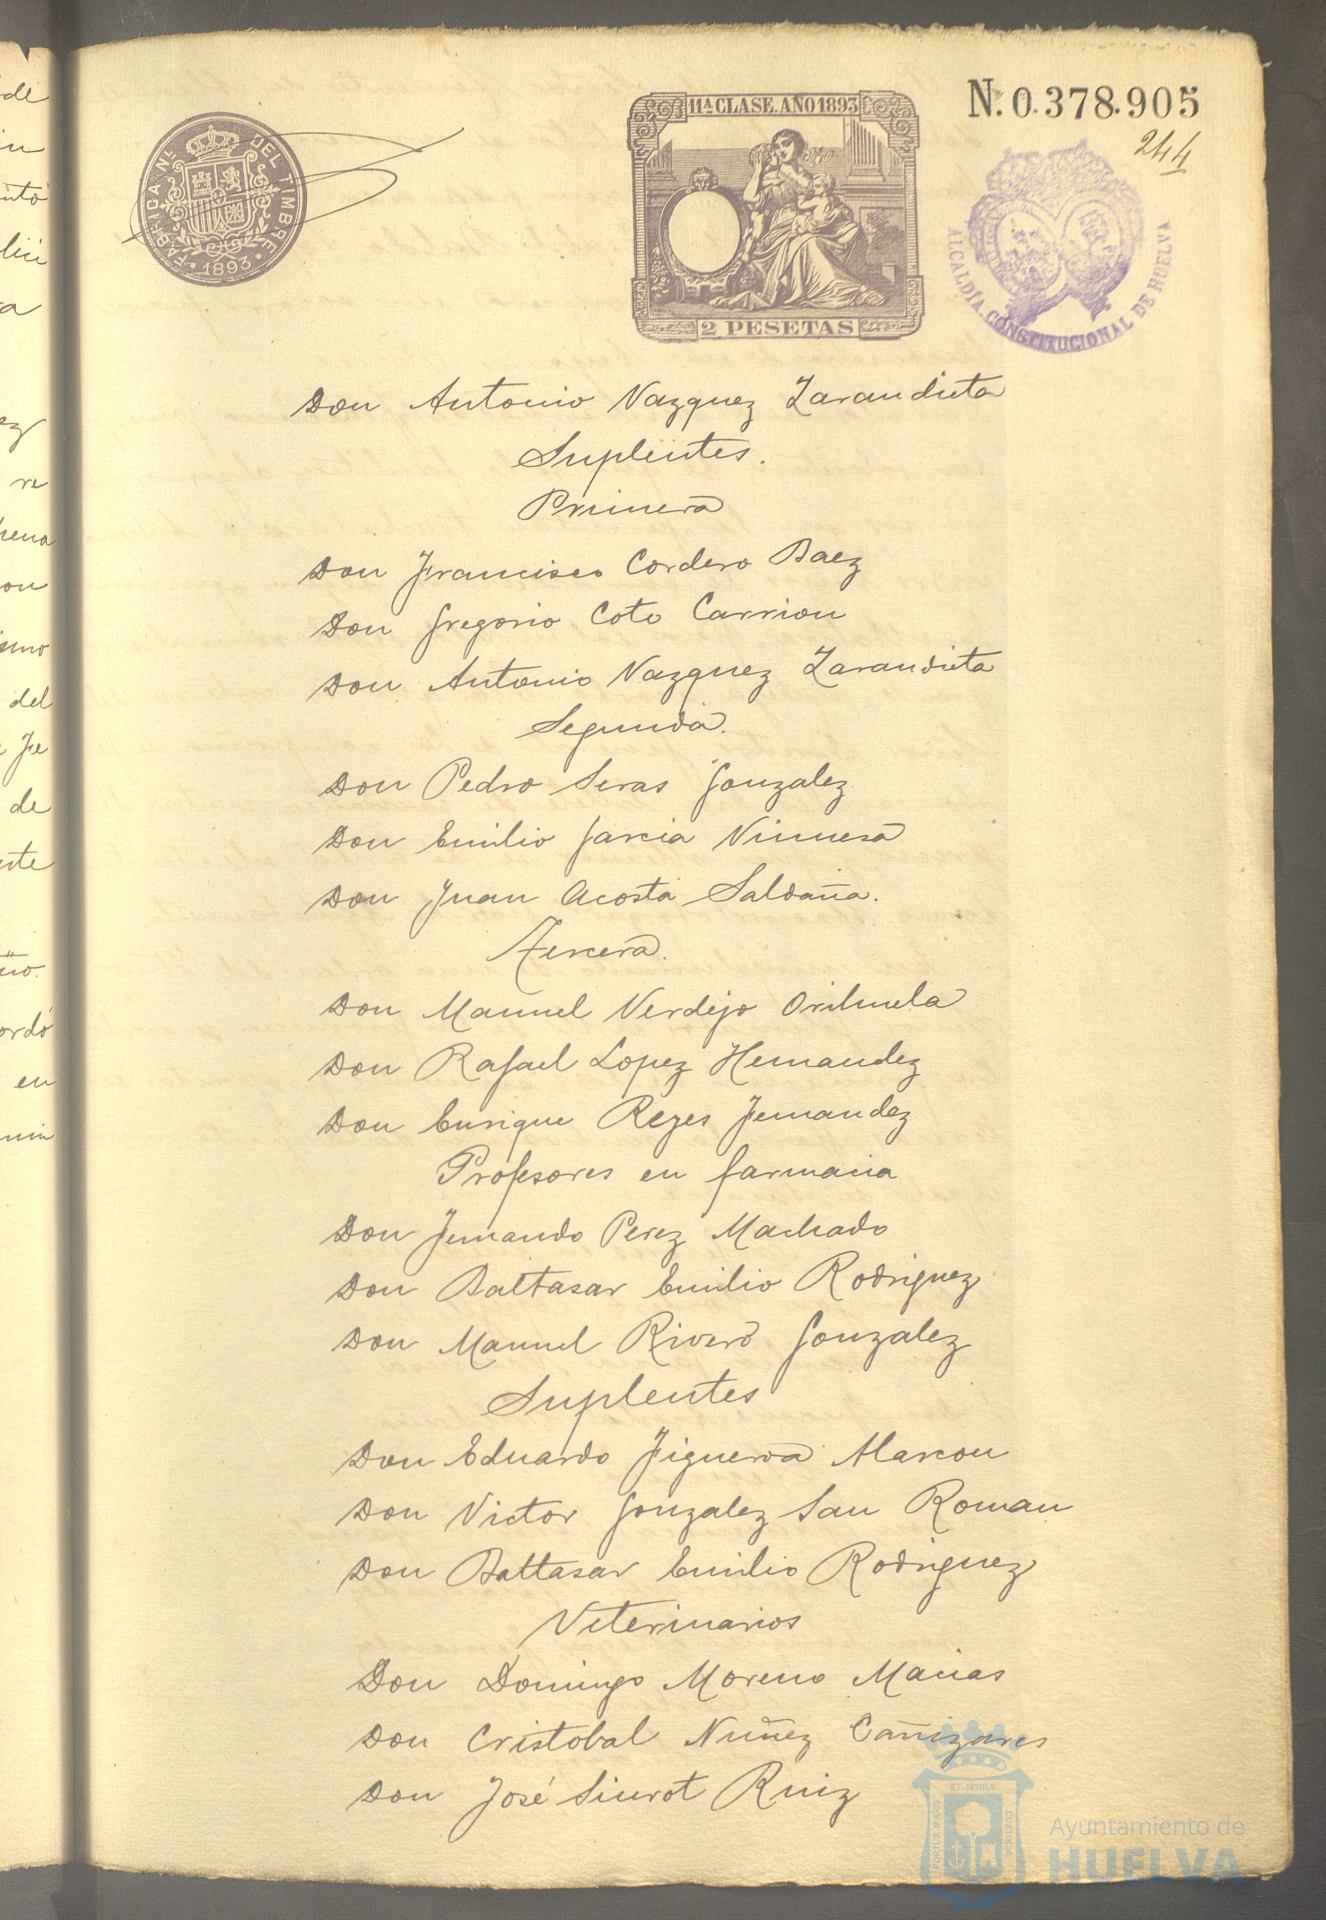 11ª CLASE. AÑO 1893
N. 0.378.905
244
FABRICA NL. DEL TIMBRE
1893
ALCALDÍA CONSTITUCIONAL DE HUELVA
2 PESETAS
Don Antonio Vazquez Zarandieta
Suplentes.
Primera
Don Francisco Cordero Baez
Don Gregorio Coto Carrion
Don Antonio Vazquez Zarandieta
Segunda.
Don Pedro Seras Gonzalez
Don Emilio Garcia Vinuesa
Don Juan Acosta Saldaña.
Tercera.
Don Manuel Verdejo Orihuela
Don Rafael Lopez Hernandez
Don Enrique Reyes Fernandez
Profesores en farmacia
Don Fernando Perez Machado
Don Baltasar Emilio Rodriguez
Don Manuel Rivero Gonzalez
Suplentes
Don Eduardo Figueroa Alarcon
Don Victor Gonzalez San Roman
Don Baltasar Emilio Rodriguez
Veterinarios
Don Domingo Moreno Macias
Don Cristobal Nuñez Cañizares
Don José Siurot Ruiz
Ayuntamiento de
HUELVA